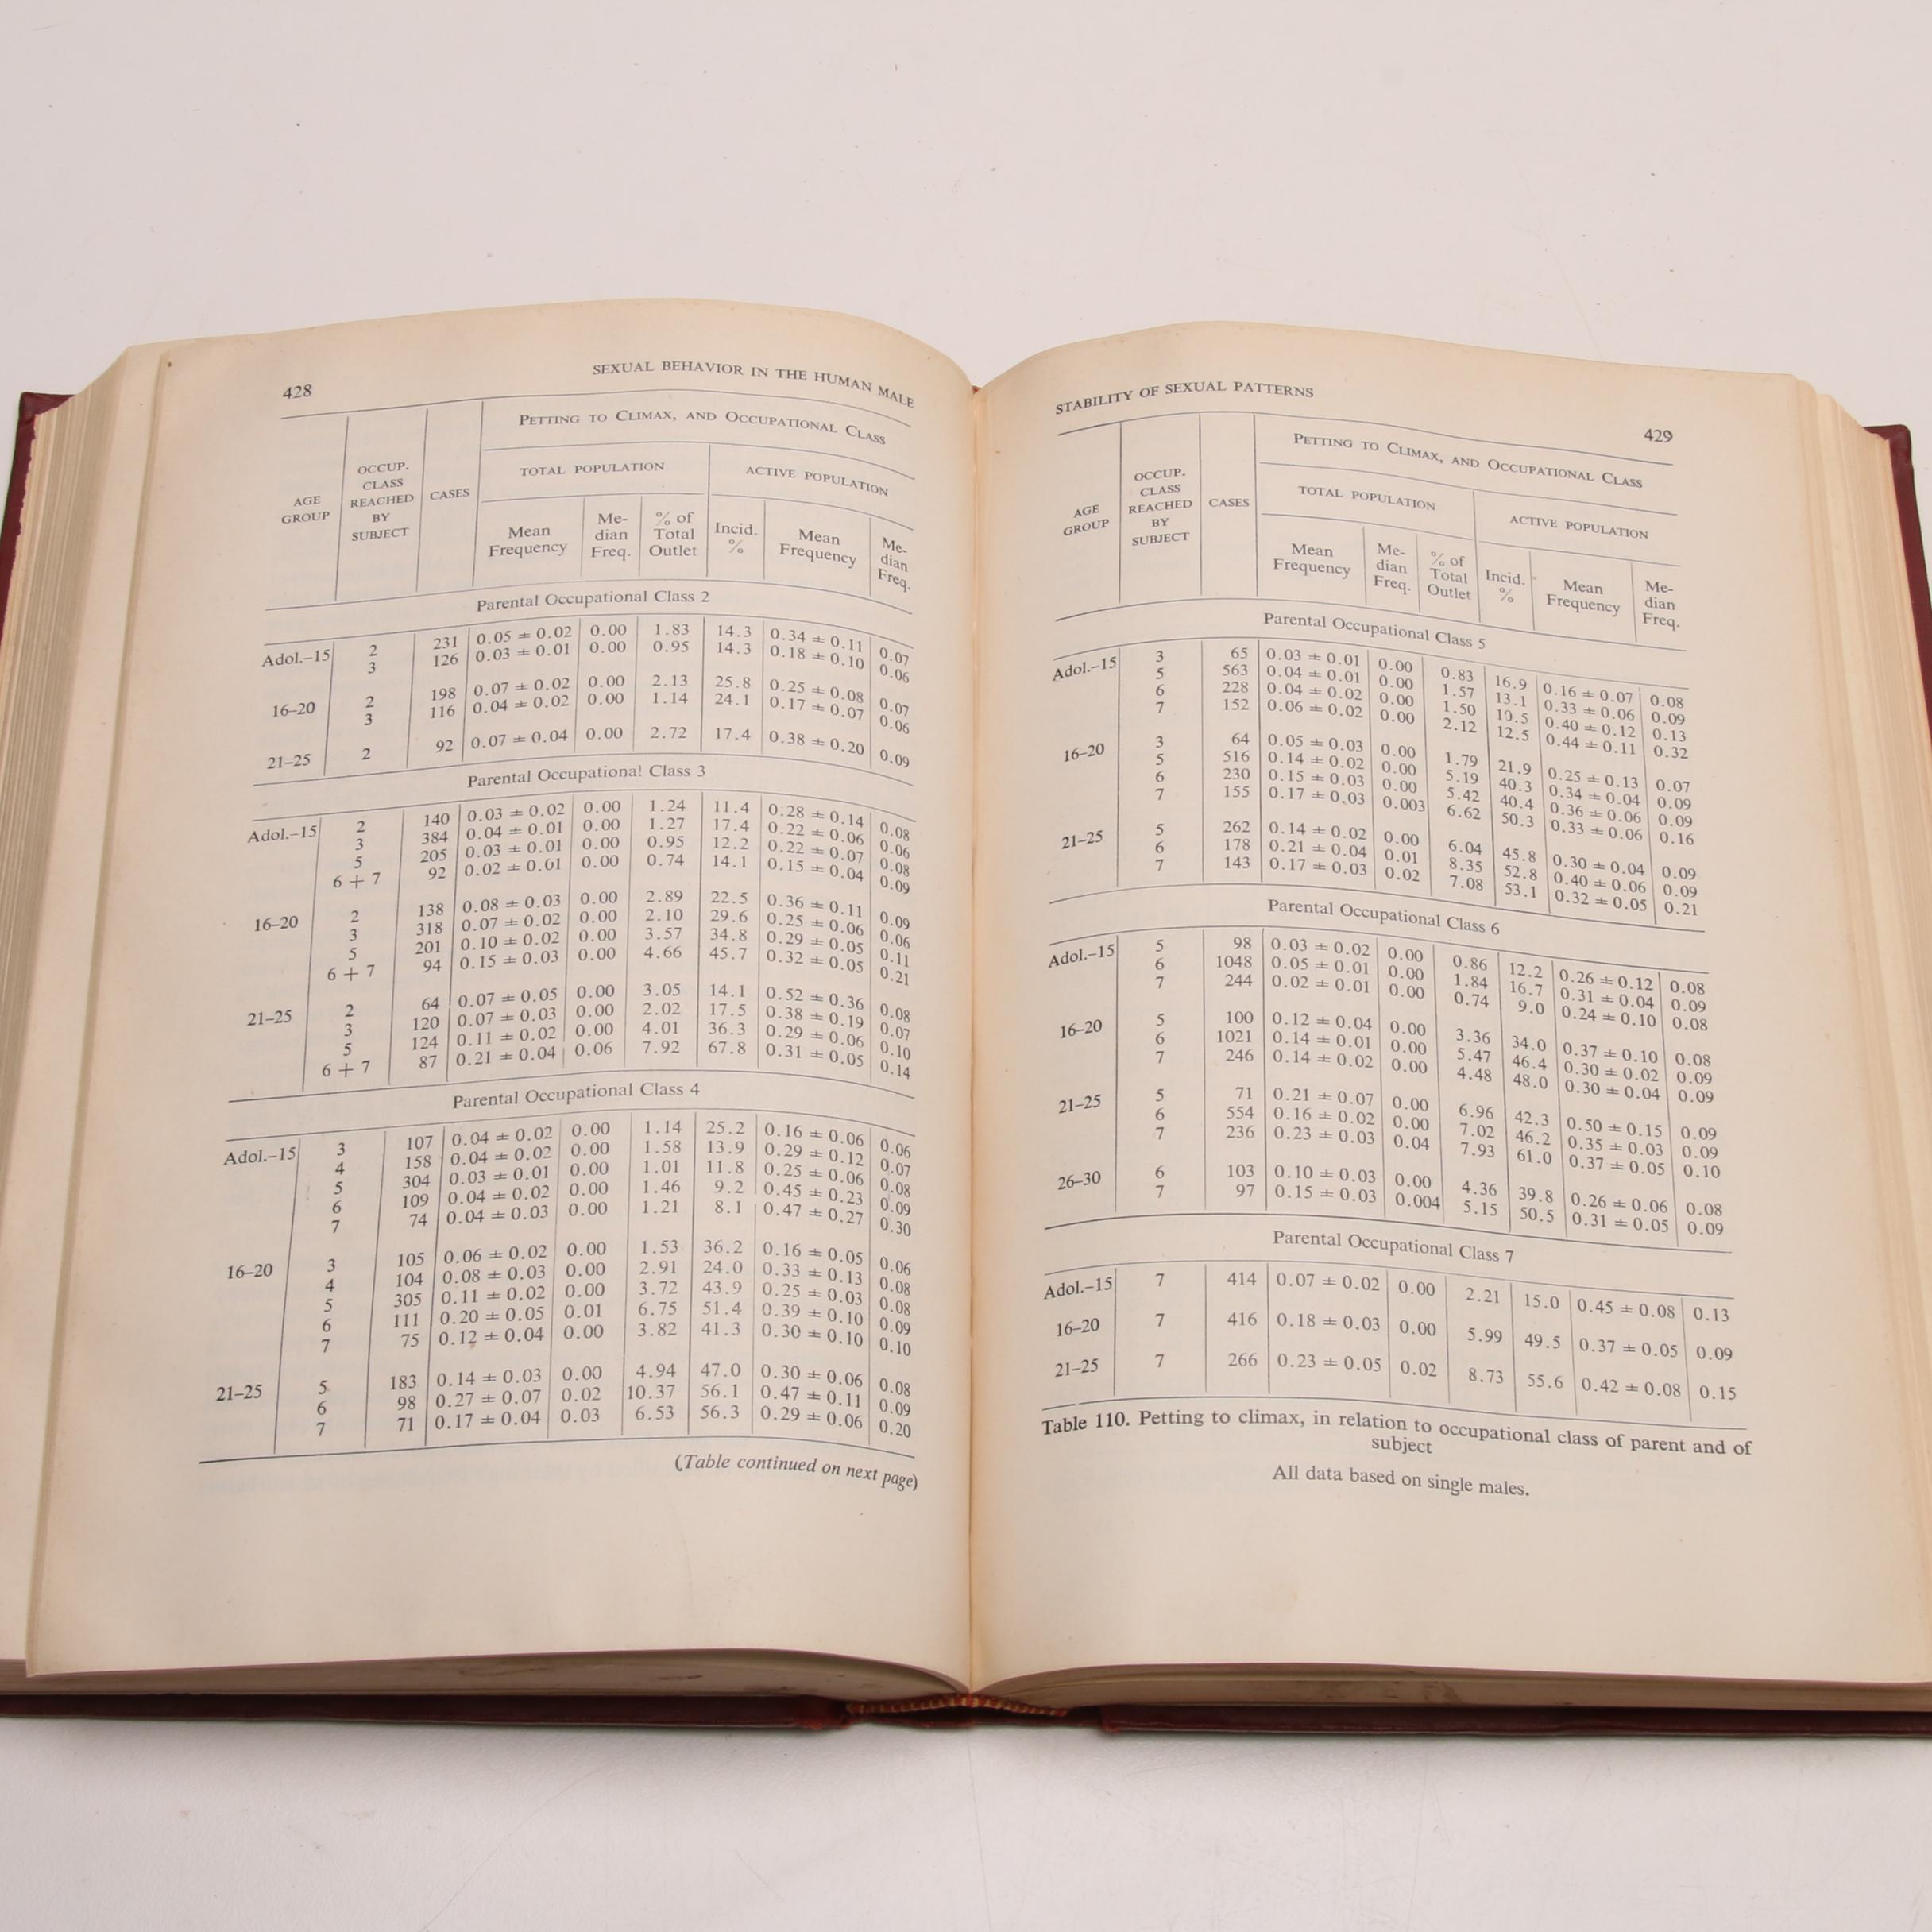 428
SEXUAL BEHAVIOR IN THE HUMAN MALE
AGE GROUP
OCCUP. CLASS REACHED BY SUBJECT
CASES
PETTING TO CLIMAX, AND OCCUPATIONAL CLASS
TOTAL POPULATION
ACTIVE POPULATION
Mean Frequency
Me-dian Freq.
% of Total Outlet
Incid. %
Mean Frequency
Me-dian Freq.
Parental Occupational Class 2
Adol.–15 2 231 0.05 ± 0.02 0.00 1.83 14.3 0.34 ± 0.11 0.07
3 126 0.03 ± 0.01 0.00 0.95 14.3 0.18 ± 0.10 0.06
16–20 2 198 0.07 ± 0.02 0.00 2.13 25.8 0.25 ± 0.08 0.07
3 116 0.04 ± 0.02 0.00 1.14 24.1 0.17 ± 0.07 0.06
21–25 2 92 0.07 ± 0.04 0.00 2.72 17.4 0.38 ± 0.20 0.09
Parental Occupational Class 3
Adol.–15 2 140 0.03 ± 0.02 0.00 1.24 11.4 0.28 ± 0.14 0.08
3 384 0.04 ± 0.01 0.00 1.27 17.4 0.22 ± 0.06 0.06
5 205 0.03 ± 0.01 0.00 0.95 12.2 0.22 ± 0.07 0.08
6 + 7 92 0.02 ± 0.01 0.00 0.74 14.1 0.15 ± 0.04 0.09
16–20 2 138 0.08 ± 0.03 0.00 2.89 22.5 0.36 ± 0.11 0.09
3 318 0.07 ± 0.02 0.00 2.10 29.6 0.25 ± 0.06 0.06
5 201 0.10 ± 0.02 0.00 3.57 34.8 0.29 ± 0.05 0.11
6 + 7 94 0.15 ± 0.03 0.00 4.66 45.7 0.32 ± 0.05 0.21
21–25 2 64 0.07 ± 0.05 0.00 3.05 14.1 0.52 ± 0.36 0.08
3 120 0.07 ± 0.03 0.00 2.02 17.5 0.38 ± 0.19 0.07
5 124 0.11 ± 0.02 0.00 4.01 36.3 0.29 ± 0.06 0.10
6 + 7 87 0.21 ± 0.04 0.06 7.92 67.8 0.31 ± 0.05 0.14
Parental Occupational Class 4
Adol.–15 3 107 0.04 ± 0.02 0.00 1.14 25.2 0.16 ± 0.06 0.06
4 158 0.04 ± 0.02 0.00 1.58 13.9 0.29 ± 0.12 0.07
5 304 0.03 ± 0.01 0.00 1.01 11.8 0.25 ± 0.06 0.08
6 109 0.04 ± 0.02 0.00 1.46 9.2 0.45 ± 0.23 0.09
7 74 0.04 ± 0.03 0.00 1.21 8.1 0.47 ± 0.27 0.30
16–20 3 105 0.06 ± 0.02 0.00 1.53 36.2 0.16 ± 0.05 0.06
4 104 0.08 ± 0.03 0.00 2.91 24.0 0.33 ± 0.13 0.08
5 305 0.11 ± 0.02 0.00 3.72 43.9 0.25 ± 0.03 0.08
6 111 0.20 ± 0.05 0.01 6.75 51.4 0.39 ± 0.10 0.09
7 75 0.12 ± 0.04 0.00 3.82 41.3 0.30 ± 0.10 0.10
21–25 5 183 0.14 ± 0.03 0.00 4.94 47.0 0.30 ± 0.06 0.08
6 98 0.27 ± 0.07 0.02 10.37 56.1 0.47 ± 0.11 0.09
7 71 0.17 ± 0.04 0.03 6.53 56.3 0.29 ± 0.06 0.20
(Table continued on next page)
STABILITY OF SEXUAL PATTERNS
429
AGE GROUP
OCCUP. CLASS REACHED BY SUBJECT
CASES
PETTING TO CLIMAX, AND OCCUPATIONAL CLASS
TOTAL POPULATION
ACTIVE POPULATION
Mean Frequency
Me-dian Freq.
% of Total Outlet
Incid. %
Mean Frequency
Me-dian Freq.
Parental Occupational Class 5
Adol.–15 3 65 0.03 ± 0.01 0.00 0.83 16.9 0.16 ± 0.07 0.08
5 563 0.04 ± 0.01 0.00 1.57 13.1 0.33 ± 0.06 0.09
6 228 0.04 ± 0.02 0.00 1.50 10.5 0.40 ± 0.12 0.13
7 152 0.06 ± 0.02 0.00 2.12 12.5 0.44 ± 0.11 0.32
16–20 3 64 0.05 ± 0.03 0.00 1.79 21.9 0.25 ± 0.13 0.07
5 516 0.14 ± 0.02 0.00 5.19 40.3 0.34 ± 0.04 0.09
6 230 0.15 ± 0.03 0.00 5.42 40.4 0.36 ± 0.06 0.09
7 155 0.17 ± 0.03 0.003 6.62 50.3 0.33 ± 0.06 0.16
21–25 5 262 0.14 ± 0.02 0.00 6.04 45.8 0.30 ± 0.04 0.09
6 178 0.21 ± 0.04 0.01 8.35 52.8 0.40 ± 0.06 0.09
7 143 0.17 ± 0.03 0.02 7.08 53.1 0.32 ± 0.05 0.21
Parental Occupational Class 6
Adol.–15 5 98 0.03 ± 0.02 0.00 0.86 12.2 0.26 ± 0.12 0.08
6 1048 0.05 ± 0.01 0.00 1.84 16.7 0.31 ± 0.04 0.09
7 244 0.02 ± 0.01 0.00 0.74 9.0 0.24 ± 0.10 0.08
16–20 5 100 0.12 ± 0.04 0.00 3.36 34.0 0.37 ± 0.10 0.08
6 1021 0.14 ± 0.01 0.00 5.47 46.4 0.30 ± 0.02 0.09
7 246 0.14 ± 0.02 0.00 4.48 48.0 0.30 ± 0.04 0.09
21–25 5 71 0.21 ± 0.07 0.00 6.96 42.3 0.50 ± 0.15 0.09
6 554 0.16 ± 0.02 0.00 7.02 46.2 0.35 ± 0.03 0.09
7 236 0.23 ± 0.03 0.04 7.93 61.0 0.37 ± 0.05 0.10
26–30 6 103 0.10 ± 0.03 0.00 4.36 39.8 0.26 ± 0.06 0.08
7 97 0.15 ± 0.03 0.004 5.15 50.5 0.31 ± 0.05 0.09
Parental Occupational Class 7
Adol.–15 7 414 0.07 ± 0.02 0.00 2.21 15.0 0.45 ± 0.08 0.13
16–20 7 416 0.18 ± 0.03 0.00 5.99 49.5 0.37 ± 0.05 0.09
21–25 7 266 0.23 ± 0.05 0.02 8.73 55.6 0.42 ± 0.08 0.15
Table 110. Petting to climax, in relation to occupational class of parent and of
subject
All data based on single males.